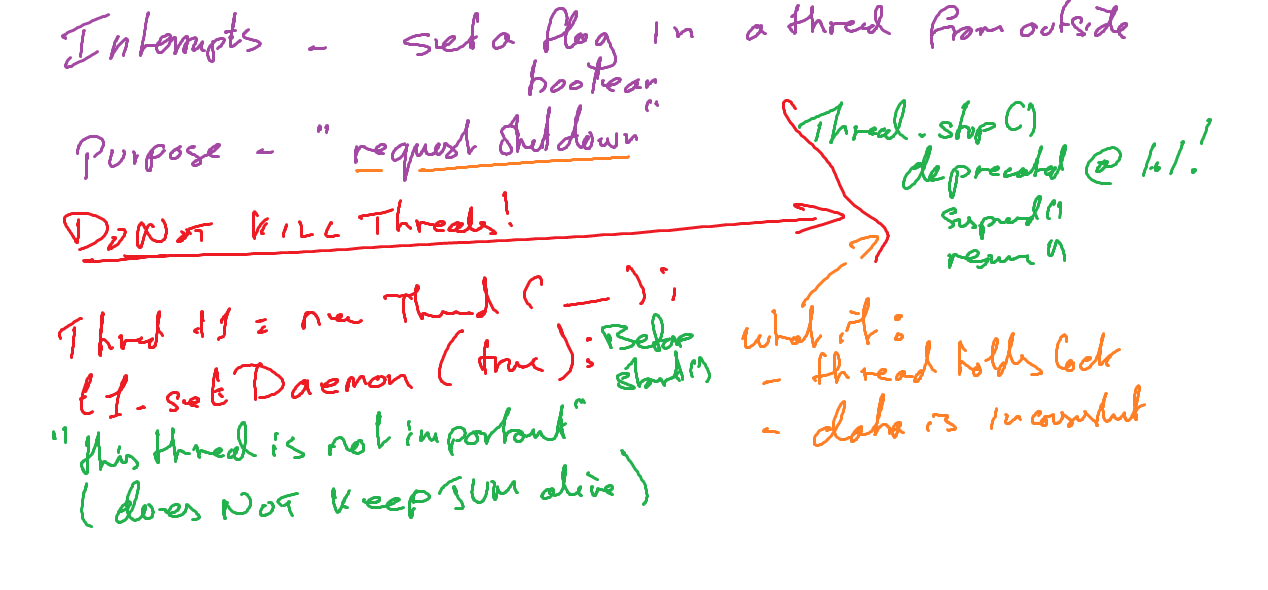 Interrupts - set a flag in a thread from outside
boolean
Purpose - "request shutdown"
Thread.stop()
deprecated @ 1.1!
suspend()
resume()
DO NOT KILL Threads!
Thread t1 = new Thread ( __ );
t1.setDaemon (true); Before start()
"this thread is not important"
(does NOT keep JVM alive)
what if:
- thread holds lock
- data is inconsistent